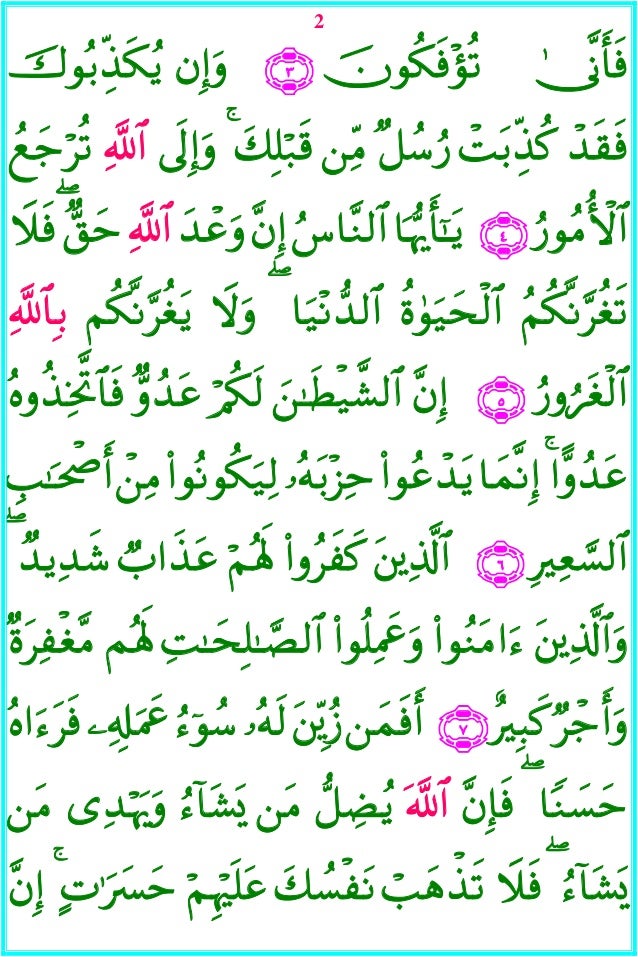 2
فَأَنَّىٰ تُؤْفَكُونَ ٣ وَإِن يُكَذِّبُوكَ
فَقَدْ كُذِّبَتْ رُسُلٌ مِّن قَبْلِكَ ۚ وَإِلَى ٱللَّهِ تُرْجَعُ
ٱلْأُمُورُ ٤ يَـٰٓأَيُّهَا ٱلنَّاسُ إِنَّ وَعْدَ ٱللَّهِ حَقٌّ ۖ فَلَا
تَغُرَّنَّكُمُ ٱلْحَيَوٰةُ ٱلدُّنْيَا ۖ وَلَا يَغُرَّنَّكُم بِٱللَّهِ
ٱلْغَرُورُ ٥ إِنَّ ٱلشَّيْطَـٰنَ لَكُمْ عَدُوٌّ فَٱتَّخِذُوهُ
عَدُوًّا ۚ إِنَّمَا يَدْعُوا۟ حِزْبَهُۥ لِيَكُونُوا۟ مِنْ أَصْحَـٰبِ
ٱلسَّعِيرِ ٦ ٱلَّذِينَ كَفَرُوا۟ لَهُمْ عَذَابٌ شَدِيدٌ ۖ
وَٱلَّذِينَ ءَامَنُوا۟ وَعَمِلُوا۟ ٱلصَّـٰلِحَـٰتِ لَهُم مَّغْفِرَةٌ
وَأَجْرٌ كَبِيرٌ ٧ أَفَمَن زُيِّنَ لَهُۥ سُوٓءُ عَمَلِهِۦ فَرَءَاهُ
حَسَنًا ۖ فَإِنَّ ٱللَّهَ يُضِلُّ مَن يَشَآءُ وَيَهْدِى مَن
يَشَآءُ ۖ فَلَا تَذْهَبْ نَفْسُكَ عَلَيْهِمْ حَسَرَٰتٍ ۚ إِنَّ